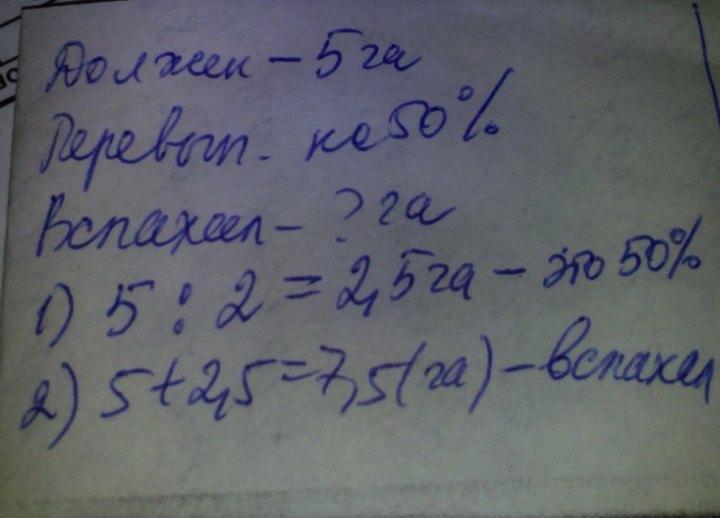 Должен – 5 га
Перевып. на 50%
Вспахал – ? га
1) 5 : 2 = 2,5 га – это 50%
2) 5 + 2,5 = 7,5 (га) – вспахал